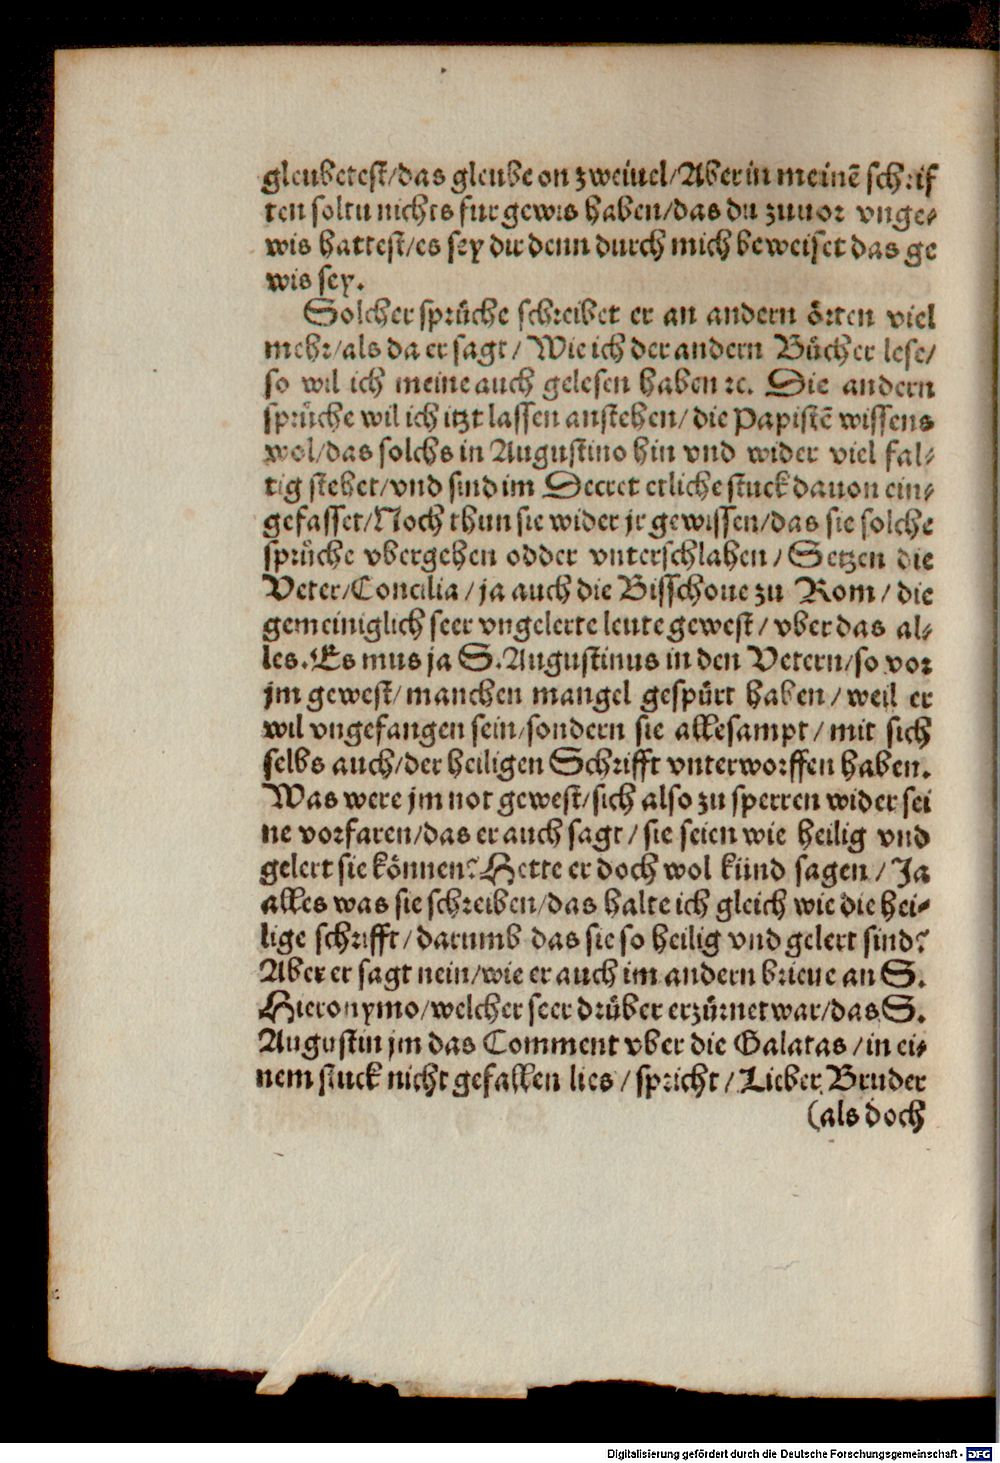 gleubetest/das gleube on zweiuel/Aber in meinē schrif
ten soltu nichts fur gewis haben/das du zuuor vnge-
wis hattest/es sey dir denn durch mich beweiset das ge
wis sey.
Solcher sprüche schreibet er an andern örten viel
mehr/als da er sagt/ Wie ich der andern Bücher lese/
so wil ich meine auch gelesen haben ꝛc. Die andern
sprüche wil ich itzt lassen anstehen/ die Papistē wissens
wol/das solchs in Augustino hin vnd wider viel fal-
tig stehet/vnd sind im Decret etliche stuck dauon ein-
gefasset/Noch thun sie wider jr gewissen/das sie solche
sprüche vbergehen odder vnterschlahen/ Setzen die
Veter/Concilia/ ja auch die Bisschoue zu Rom/ die
gemeiniglich seer vngelerte leute gewest/ vber das al-
les. Es mus ja S. Augustinus in den Vetern/so vor
jm gewest/ manchen mangel gespürt haben/ weil er
wil vngefangen sein/sondern sie allesampt/ mit sich
selbs auch/der heiligen Schrifft vnterworffen haben.
Was were jm not gewest/sich also zu sperren wider sei
ne vorfaren/das er auch sagt/ sie seien wie heilig vnd
gelert sie können? Hette er doch wol künd sagen/ Ja
alles was sie schreiben/das halte ich gleich wie die hei-
lige schrifft/ darumb das sie so heilig vnd gelert sind?
Aber er sagt nein/wie er auch im andern brieue an S.
Hieronymo/welcher seer drüber erzürnet war/das S.
Augustin jm das Comment vber die Galatas/in ei-
nem stuck nicht gefallen lies/ spricht/ Lieber Bruder
(als doch
Digitalisierung gefördert durch die Deutsche Forschungsgemeinschaft - DFG